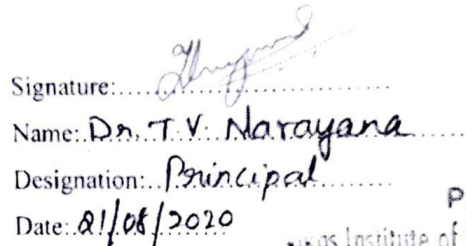 Signature:....................................
Name:. Dr. T. V. Narayana
Designation:.. Principal
Date:. 21/08/2020
P
Institute of